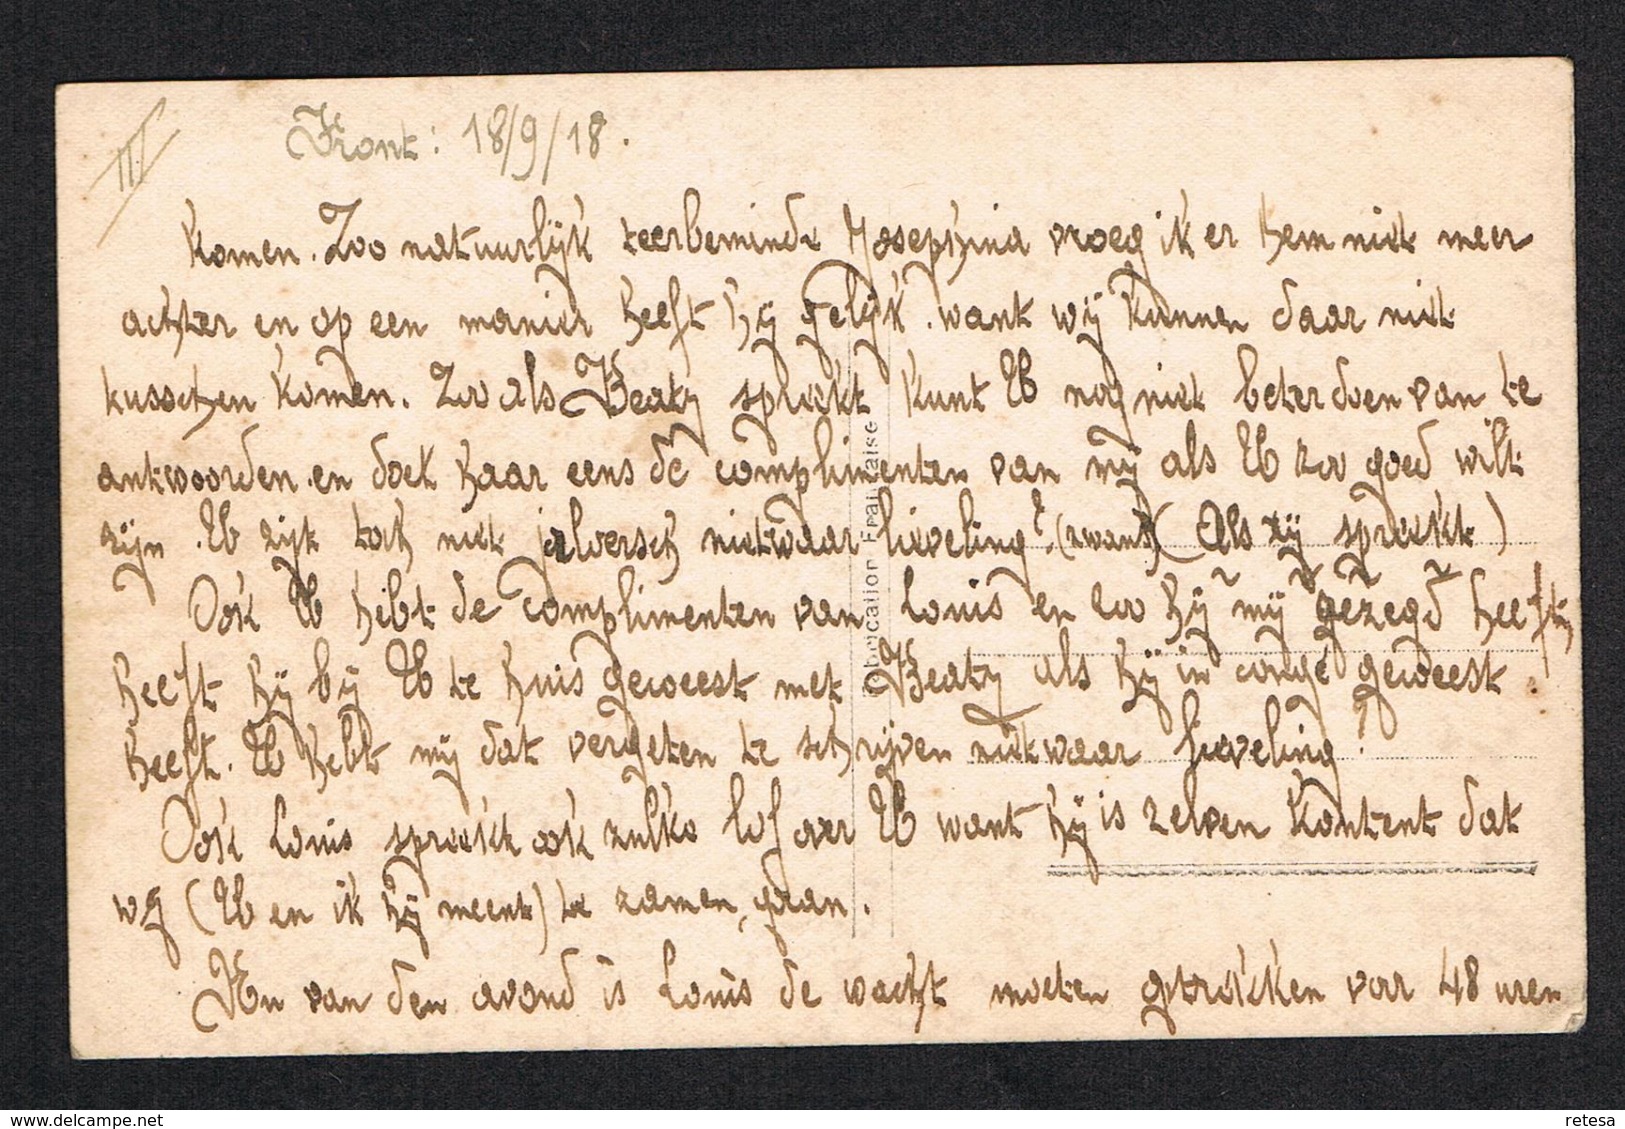 III
Front: 18/9/18.
komen. Zoo natuurlijk teerbeminde Josephina vroeg ik er hem niet meer
achter en op een manier heeft hij gelijk. want wij kunnen daar niet
tusschen komen. Zoo als Beaty spreekt kunt U nog niet beter doen van te
antwoorden. en doet haar eens de complimenten van mij als U zoo goed wilt
zijn. U zijt toch niet jaloersch nietwaar lieveling? (zwans) (Als zij spreekt)
Ook U hebt de complimenten van Louis en zoo hij mij gezegd heeft
heeft hij bij U te huis geweest met Beaty als hij in congé geweest
heeft. U hebt mij dat vergeten te schrijven nietwaar lieveling?
Ook Louis spreekt ook zulke lof over U want hij is zelven kontent dat
wij (U en ik hij meent) te zamen gaan.
Nu van den avond is Louis de wacht moeten optrekken voor 48 uren
Fabrication Française
retesa